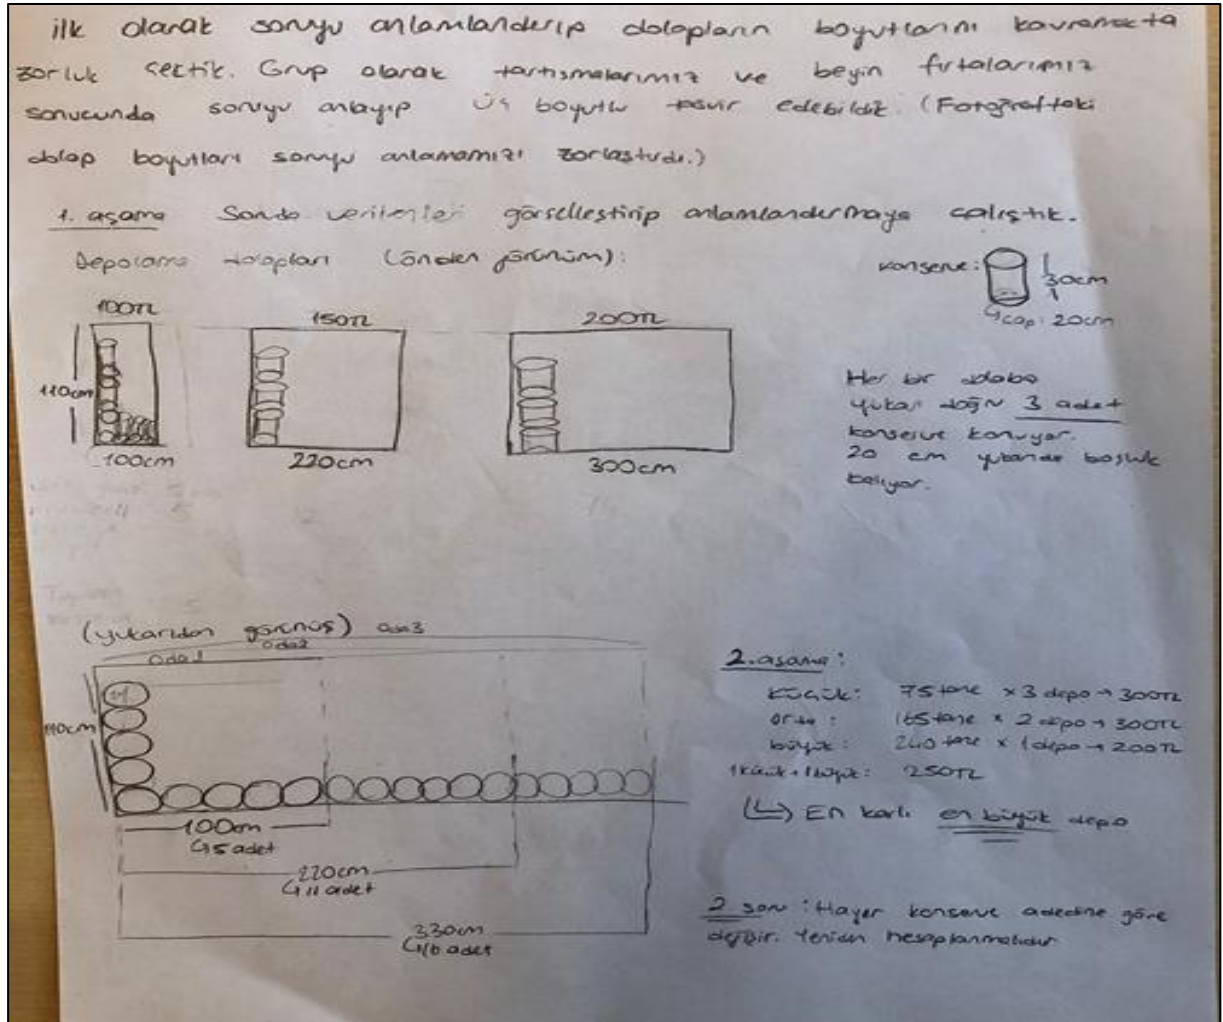 ilk olarak soruyu anlamlandırıp dolapların boyutlarını kavramakta
zorluk çektik. Grup olarak tartışmalarımız ve beyin fırtalarımız
sonucunda soruyu anlayıp üç boyutlu tasvir edebildik. (Fotoğraftaki
dolap boyutları soruyu anlamamızı zorlaştırdı.)
1. aşama Soruda verilenleri görselleştirip anlamlandırmaya çalıştık.
Depolama dolapları (önden görünüm):
konserve:
30cm
çap: 20cm
100TL
150TL
200TL
110cm
100cm
220cm
300cm
Her bir dolaba
yukarı doğru 3 adet
konserve konuyor.
20 cm yukarıda boşluk
kalıyor.
(yukarıdan görünüş)
oda3
oda2
oda1
110cm
100cm
5 adet
220cm
11 adet
330cm
16 adet
2. aşama:
küçük: 75 tane x 3 depo → 300TL
orta: 165 tane x 2 depo → 300TL
büyük: 240 tane x 1 depo → 200TL
1 küçük + 1 büyük: 250TL
En karlı en büyük depo
2. soru: Hayır konserve adedine göre
değişir. Yeniden hesaplanmalıdır